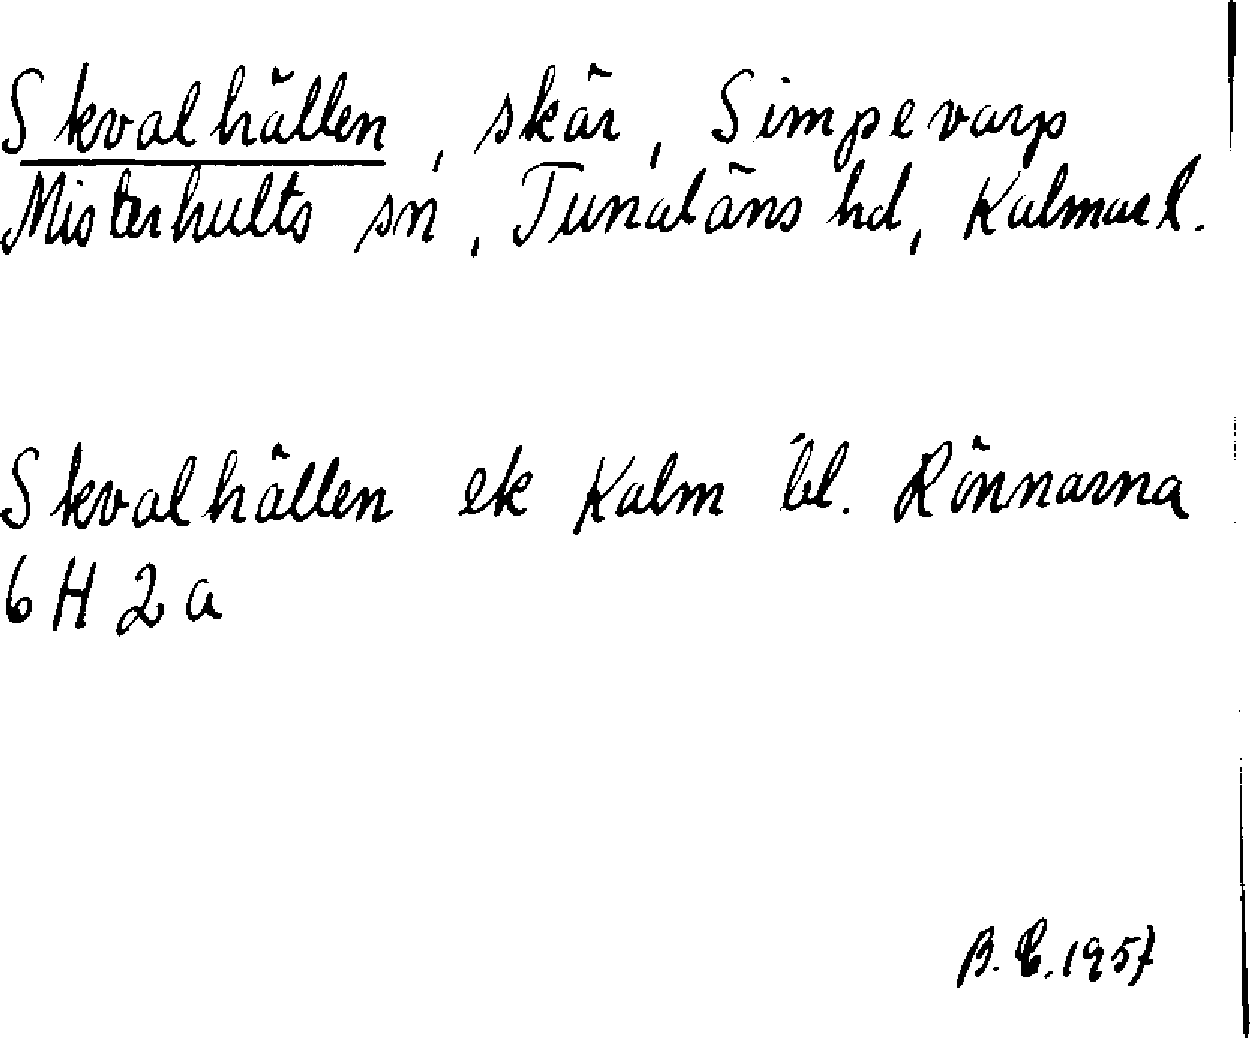 Skvalhällen, skär, Simpevarp
Misterhults sn, Tunaläns hd, Kalmar l.
Skvalhällen ek Kalm bl. Rönnarna
6 H 2 a
B. E. 1957